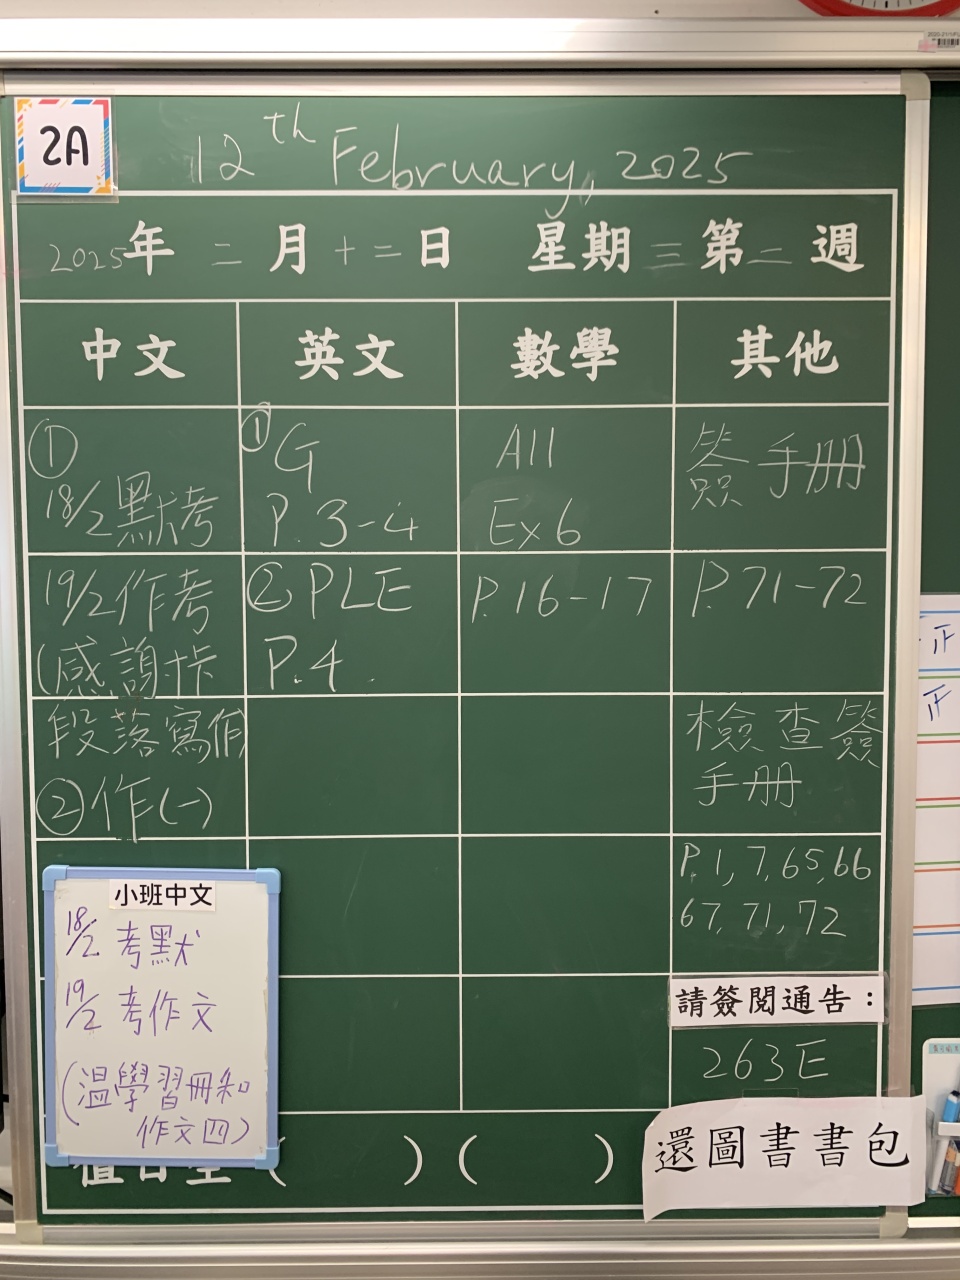 2A
12th February, 2025
2025年二月十二日 星期三 第二週
中文 英文 數學 其他
①
18/2默考
19/2作考
(感謝卡
段落寫作
②作(一)
①G
P.3-4
②PLE
P.4.
All
Ex6
P.16-17
簽手冊
P.71-72
檢查簽
手冊
P.1,7,65,66
67,71,72
請簽閱通告：
263E
還圖書書包
小班中文
18/2 考默
19/2 考作文
(溫學習冊和
作文四)
值日生( )( )
正
正